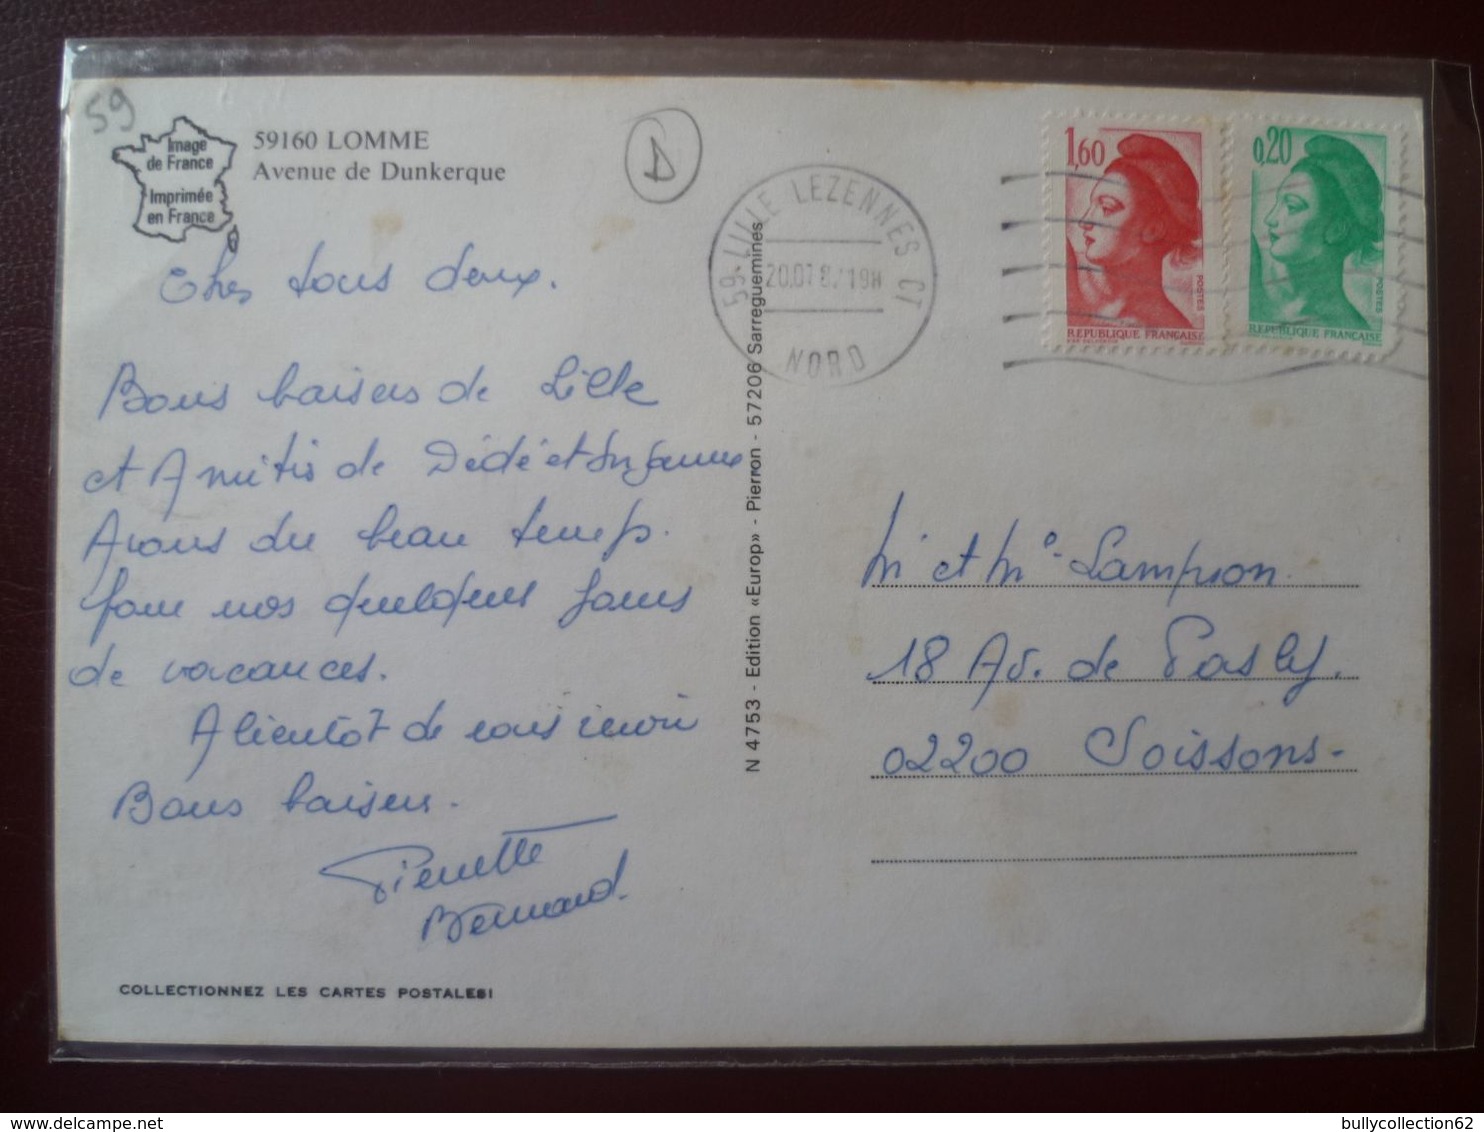 59
Image
de France
Imprimée
en France
59160 LOMME
Avenue de Dunkerque
D
59-LILLE LEZENNES CT
20.07 8. 19H
NORD
1,60
POSTES
REPUBLIQUE FRANÇAISE
0,20
POSTES
REPUBLIQUE FRANÇAISE
Chers tous deux.
Bons baisers de Lille
et Amitiés de Dédé et
Avons du beau temps.
pour nos quelques jours
de vacances.
A bientôt de vous revoir
Bons baisers.
Pierrette
Bernard.
COLLECTIONNEZ LES CARTES POSTALES!
N 4753 - Edition «Europ» - Pierron - 57206 Sarreguemines
Mr et Me - Lampion.
18 Av. de Pasly.
02200 Soissons-
bullycollection62